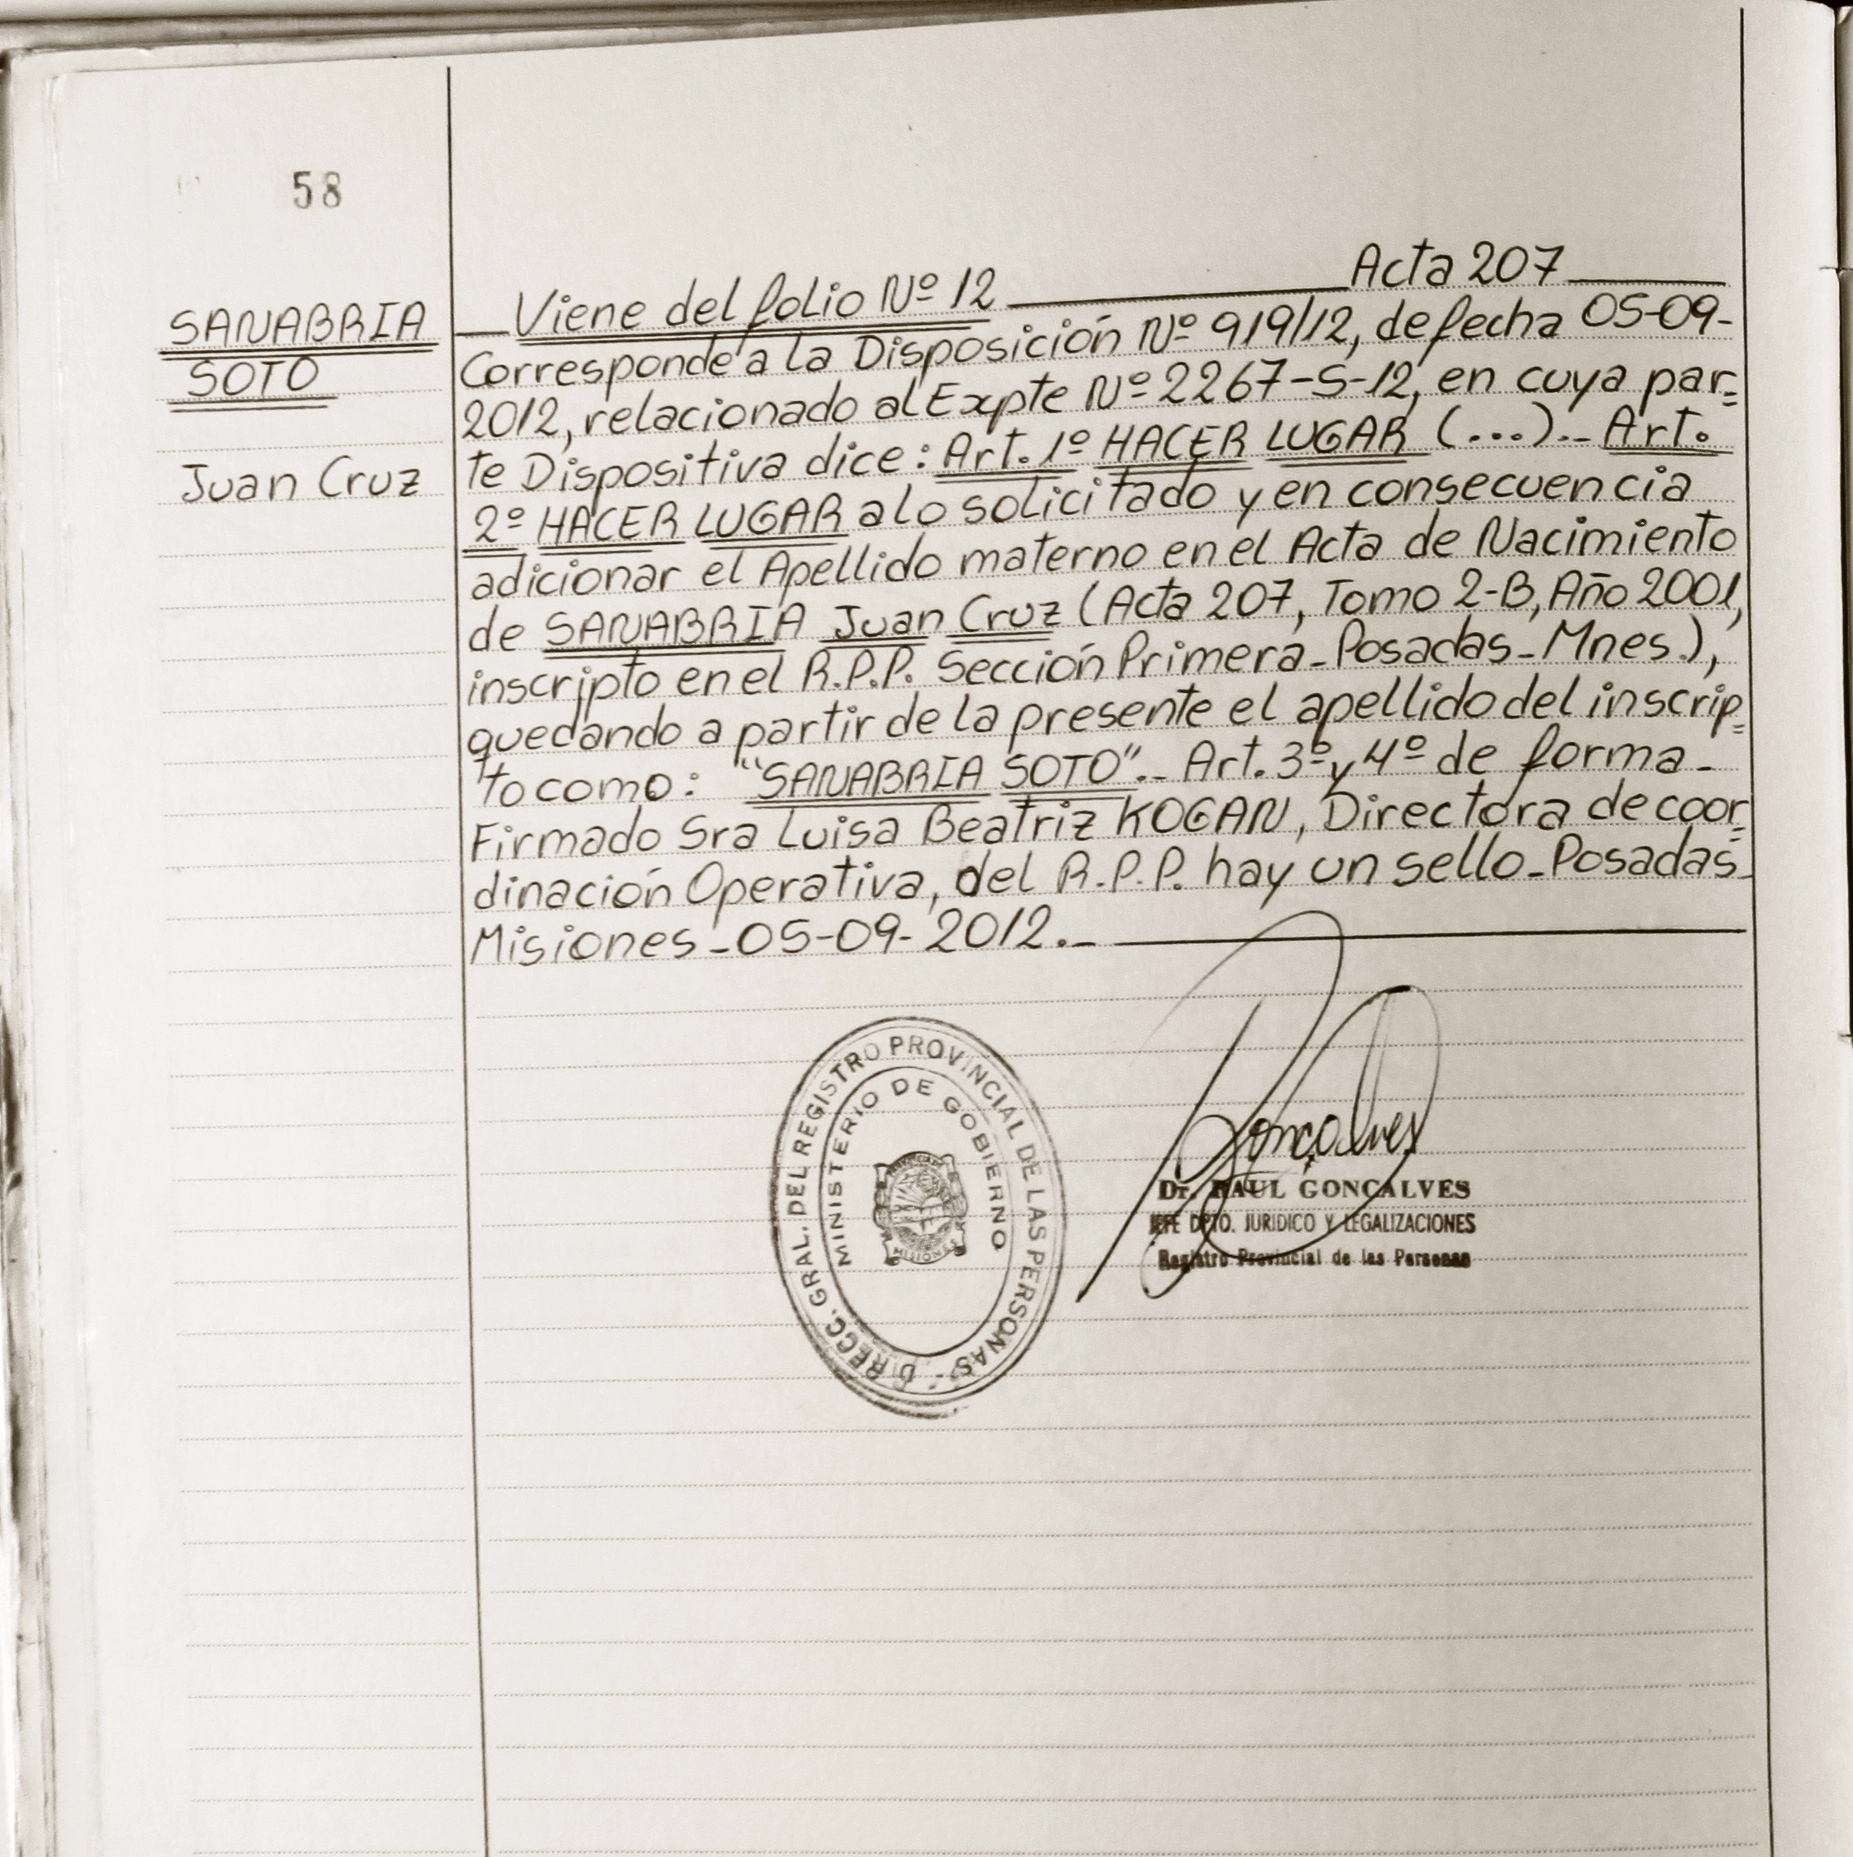 58
SANABRIA
SOTO
Juan Cruz
Acta 207
Viene del folio Nº 12
Corresponde a la Disposición Nº 919/12, de fecha 05-09-
2012, relacionado al Expte Nº 2267-S-12, en cuya par=
te Dispositiva dice: Art. 1º HACER LUGAR (...).- Art.
2º HACER LUGAR a lo solicitado y en consecuencia
adicionar el Apellido materno en el Acta de Nacimiento
de SANABRIA Juan Cruz (Acta 207, Tomo 2-B, Año 2001,
inscripto en el R.P.P. Sección Primera-Posadas-Mnes.),
quedando a partir de la presente el apellido del inscrip=
to como: "SANABRIA SOTO".- Art. 3º y 4º de forma-
Firmado Sra Luisa Beatriz KOGAN, Directora de coor=
dinación Operativa, del R.P.P. hay un sello-Posadas-
Misiones-05-09-2012.-
DIRECC. GRAL. DEL REGISTRO PROVINCIAL DE LAS PERSONAS -
MINISTERIO DE GOBIERNO
MISIONES
Gonçalves
Dr. RAUL GONÇALVES
JEFE DPTO. JURIDICO Y LEGALIZACIONES
Registro Provincial de las Personas